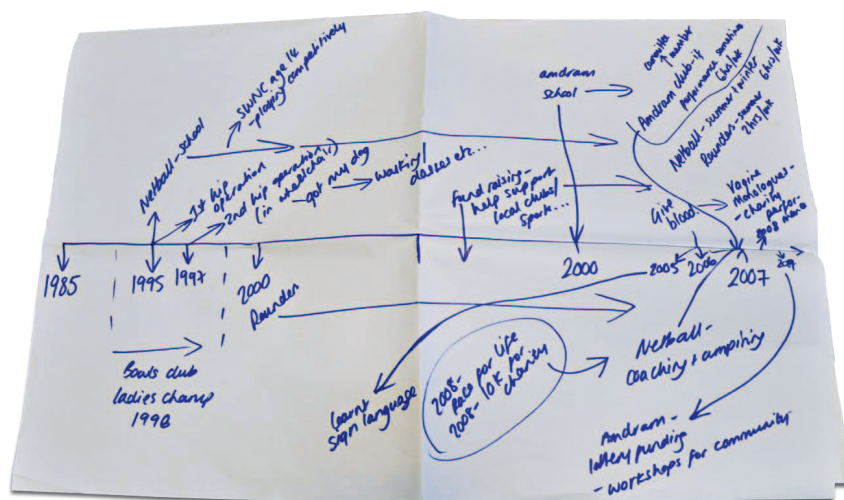 Netball-school
SWNC age 14
-playing competitively
1st hip
operation
2nd hip operation
(in wheelchair)
-got my dog
walking/
classes etc...
fund raising-
help support
local clubs/
sport...
amdram
school
committee
member
Amdram club-if
performance sometimes
6hrs/wk
Netball-summer/winter
6hrs/wk
Rounders-summer
2hrs/wk
Give
blood
Vagina
Monologues-
-charity
perfor-
2008
1985
1995
1997
2000
Rounders
2000
2005
2006
2007
Bowls club
ladies champ
1998
learnt
sign language
2008-
Race for Life
2008-10K for
charity
Netball-
coaching + umpiring
Amdram-
lottery funding
-workshops for community